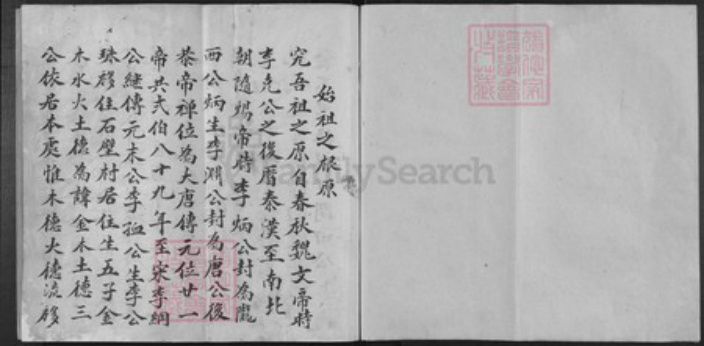 始祖之根原
究吾祖之原自春秋魏文帝時
李克公之後曆秦漢至南北
朝隨煬帝時李炳公封為隴
西公炳生李淵公封為唐公後
恭帝禅位為大唐傳元位廿一
帝共弍伯八十九年至宋李綱
公継傳元末公李孤公生李公
珠移住石壁村居住生五子金
木水火土德為諱金水土德三
公依居本處惟木德火德流移
FamilySearch